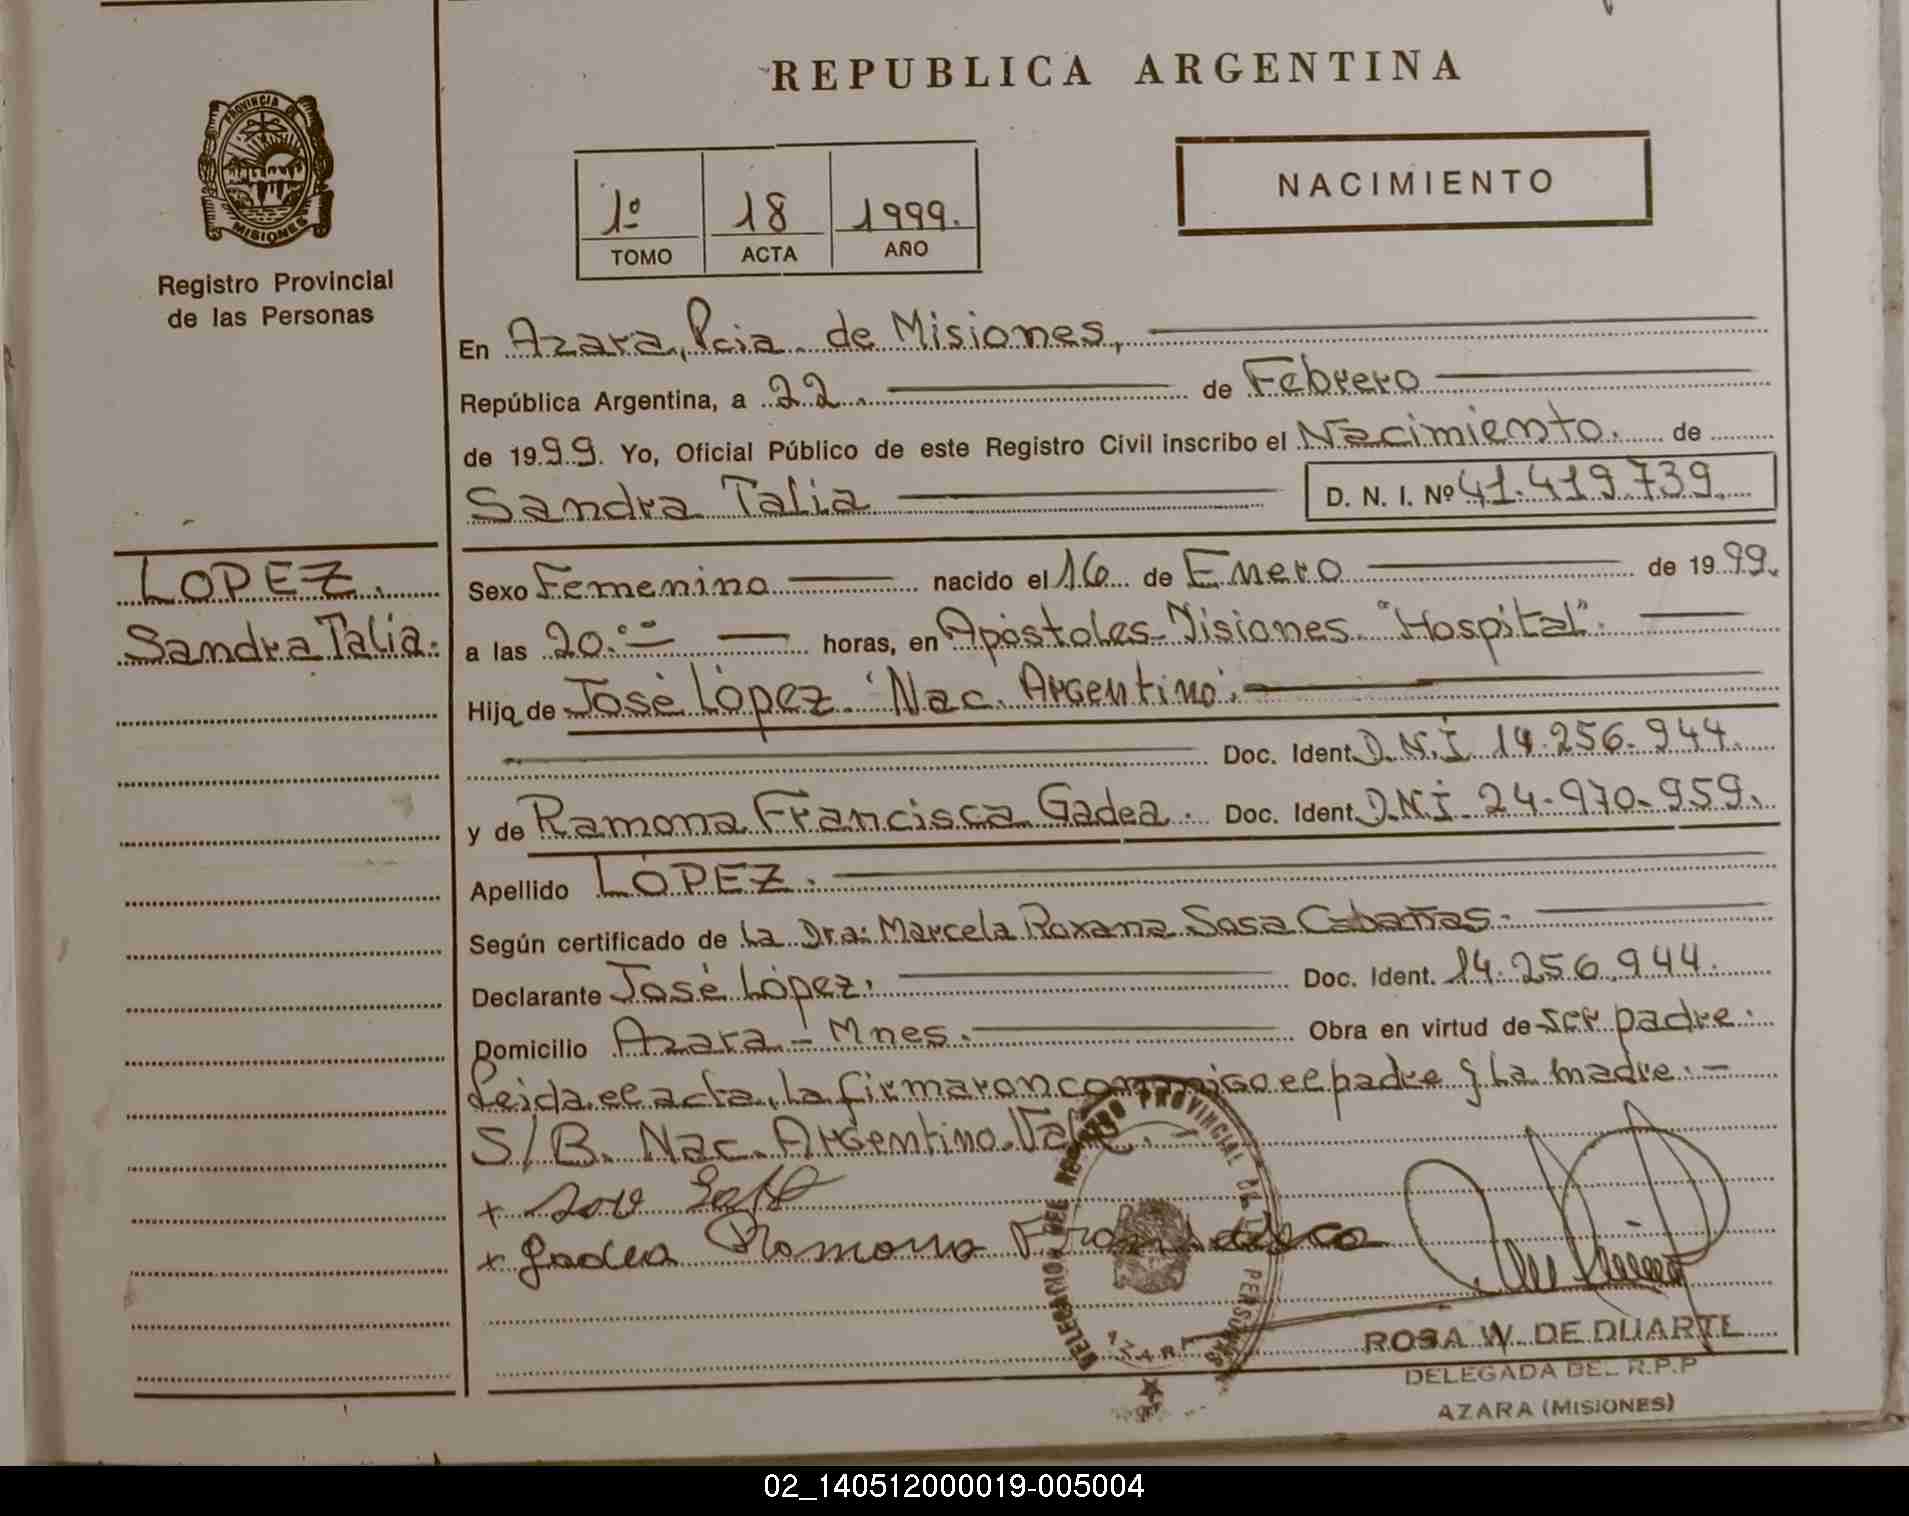 REPUBLICA ARGENTINA
PROVINCIA DE
MISIONES
Registro Provincial
de las Personas
NACIMIENTO
1º 18 1999.
TOMO ACTA AÑO
En Azara, Pcia. de Misiones,
República Argentina, a 22. de Febrero
de 1999. Yo, Oficial Público de este Registro Civil inscribo el Nacimiento. de
Sandra Talia D. N. I. Nº 41.419.739.
LOPEZ.
Sandra Talia.
Sexo Femenino nacido el 16 de Enero de 1999.
a las 20.== horas, en Apóstoles-Misiones "Hospital".
Hijo de José López. "Nac. Argentino".
Doc. Ident. D.N.I 14.256.944.
y de Ramona Francisca Gadea. Doc. Ident. D.N.I. 24-970-959.
Apellido LÓPEZ.
Según certificado de La Dra: Marcela Roxana Sosa Cabañas.
Declarante José López. Doc. Ident. 14.256.944.
Domicilio Azara-Mnes. Obra en virtud de ser padre.
Leida el acta, la firmaron conmigo el padre y la madre.-
S/B. Nac. Argentino. Vale.
+
+ Gadea Ramona Francisca
DELEGACION DEL REGISTRO PROVINCIAL DE PERSONAS
AZARA
ROSA W. DE DUARTE
DELEGADA DEL R.P.P
AZARA (MISIONES)
02_140512000019-005004